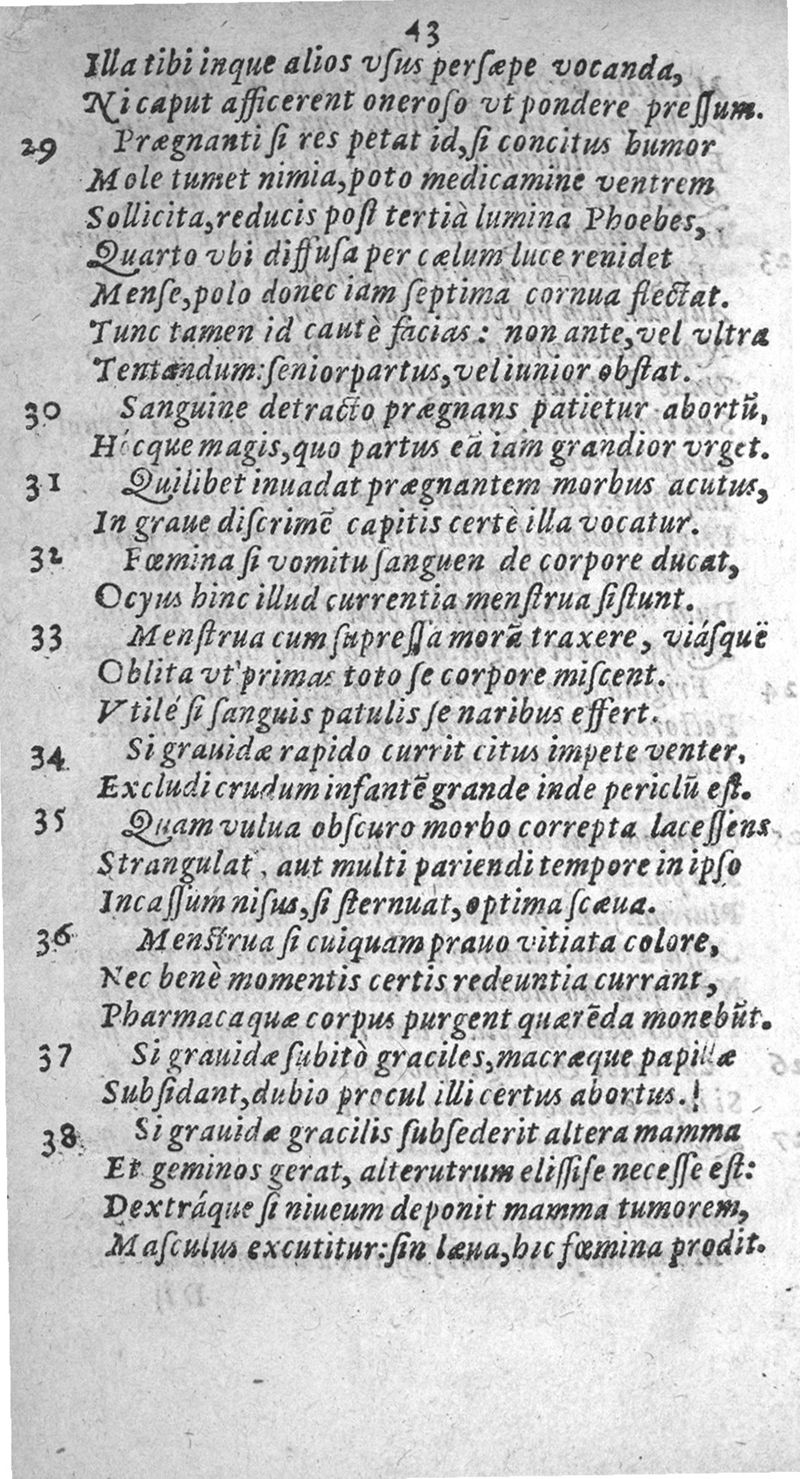 43
Illa tibi inque alios vſus perſæpe vocanda,
Ni caput afficerent oneroſo vt pondere preſſum.
29 Prægnanti ſi res petat id, ſi concitus humor
Mole tumet nimia, poto medicamine ventrem
Sollicita, reducis poſt tertià lumina Phoebes,
Quarto vbi diffuſa per cælum luce renidet
Menſe, polo donec iam ſeptima cornua flectat.
Tunc tamen id cautè facias: non ante, vel vltra
Tentandum: ſenior partus, vel iunior obſtat.
30 Sanguine detracto prægnans patietur abortũ,
Hocque magis, quo partus eã iam grandior vrget.
31 Quilibet inuadat prægnantem morbus acutus,
In graue diſcrimẽ capitis certè illa vocatur.
32 Fœmina ſi vomitu ſanguen de corpore ducat,
Ocyus hinc illud currentia menſtrua ſiſtunt.
33 Menſtrua cum ſupreſſa morã traxere, viáſquë
Oblita vt primas toto ſe corpore miſcent.
Vtilé ſi ſanguis patulis ſe naribus effert.
34 Si grauidæ rapido currit citus impete venter,
Excludi crudum infantẽ grande inde periclũ eſt.
35 Quam vulua obſcuro morbo correpta laceſſens
Strangulat, aut multi pariendi tempore in ipſo
Incaſſum niſus, ſi ſternuat, optima ſcæua.
36 Menſtrua ſi cuiquam prauo vitiata colore,
Nec benè momentis certis redeuntia currant,
Pharmaca quæ corpus purgent quærẽda monebũt.
37 Si grauidæ ſubitò graciles, macræque papillæ
Subſidant, dubio procul illi certus abortus.
38 Si grauidæ gracilis ſubſederit altera mamma
Et geminos gerat, alterutrum eliſſiſe neceſſe eſt:
Dextráque ſi niueum deponit mamma tumorem,
Maſculus excutitur: ſin læua, hic fœmina prodit.